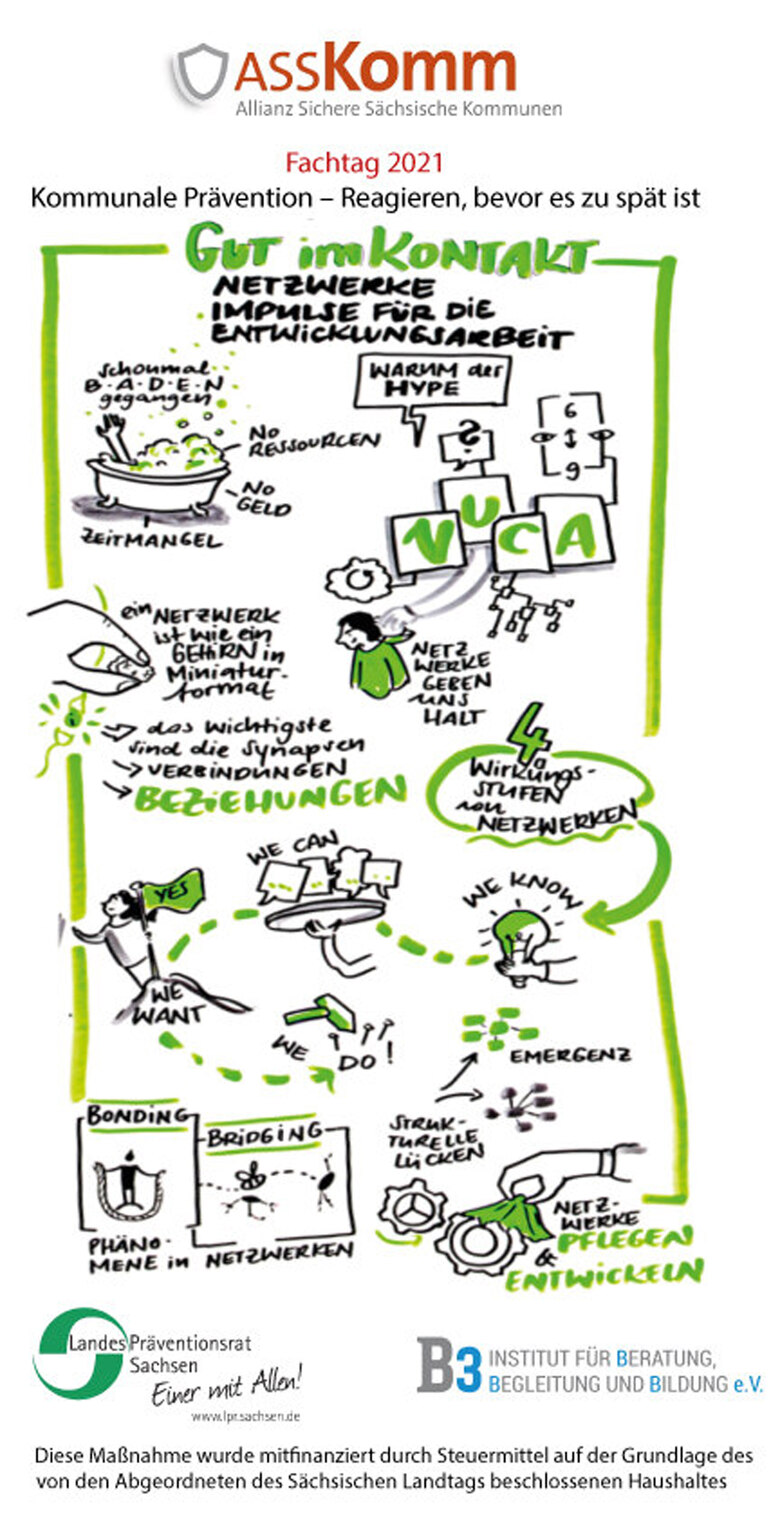 ASSKomm
Allianz Sichere Sächsische Kommunen
Fachtag 2021
Kommunale Prävention – Reagieren, bevor es zu spät ist
GUT im KONTAKT
NETZWERKE
IMPULSE FÜR DIE
ENTWICKLUNGSARBEIT
schonmal
B·A·D·E·N
gegangen
NO
RESSOURCEN
NO
GELD
ZEITMANGEL
WARUM der
HYPE
?
6
9
VUCA
ein NETZWERK
ist wie ein
GEHIRN in
Miniatur-
format
NETZ
WERKE
GEBEN
UNS
HALT
das wichtigste
sind die Synapsen
VERBINDUNGEN
BEZIEHUNGEN
4
Wirkungs-
STUFEN
von
NETZWERKEN
WE CAN
WE KNOW
YES
WE
WANT
WE DO!
EMERGENZ
STRUK-
TURELLE
LÜCKEN
BONDING
BRIDGING
PHÄNO-
MENE in NETZWERKEN
NETZ-
WERKE
PFLEGEN
&
ENTWICKELN
LandesPräventionsrat
Sachsen
Einer mit Allen!
www.lpr.sachsen.de
B3 INSTITUT FÜR BERATUNG,
BEGLEITUNG UND BILDUNG e.V.
Diese Maßnahme wurde mitfinanziert durch Steuermittel auf der Grundlage des
von den Abgeordneten des Sächsischen Landtags beschlossenen Haushaltes